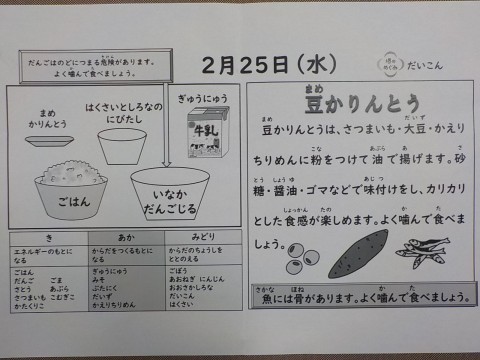 だんごはのどにつまる危険があります。
よく噛んで食べましょう。
2月25日(水)
だいこん
まめ
かりんとう
はくさいとしろなの
にびたし
ぎゅうにゅう
牛乳
ごはん
いなか
だんごじる
き
あか
みどり
エネルギーのもとに
なる
からだをつくるもとに
なる
からだのちょうしを
ととのえる
ごはん
だんご ごま
さとう あぶら
さつまいも こむぎこ
かたくりこ
ぎゅうにゅう
みそ
ぶたにく
だいず
かえりちりめん
ごぼう
あおねぎ にんじん
おおさかしろな
だいこん
はくさい
まめ
豆かりんとう
まめ だいず
豆かりんとうは、さつまいも・大豆・かえり
こな あぶら あ さ
ちりめんに粉をつけて油で揚げます。砂
とう しょうゆ あじつ
糖・醤油・ゴマなどで味付けをし、カリカリ
しょっかん たの か た
とした食感が楽しめます。よく噛んで食べま
しょう。
さかな ほね か た
魚には骨があります。よく噛んで食べましょう。